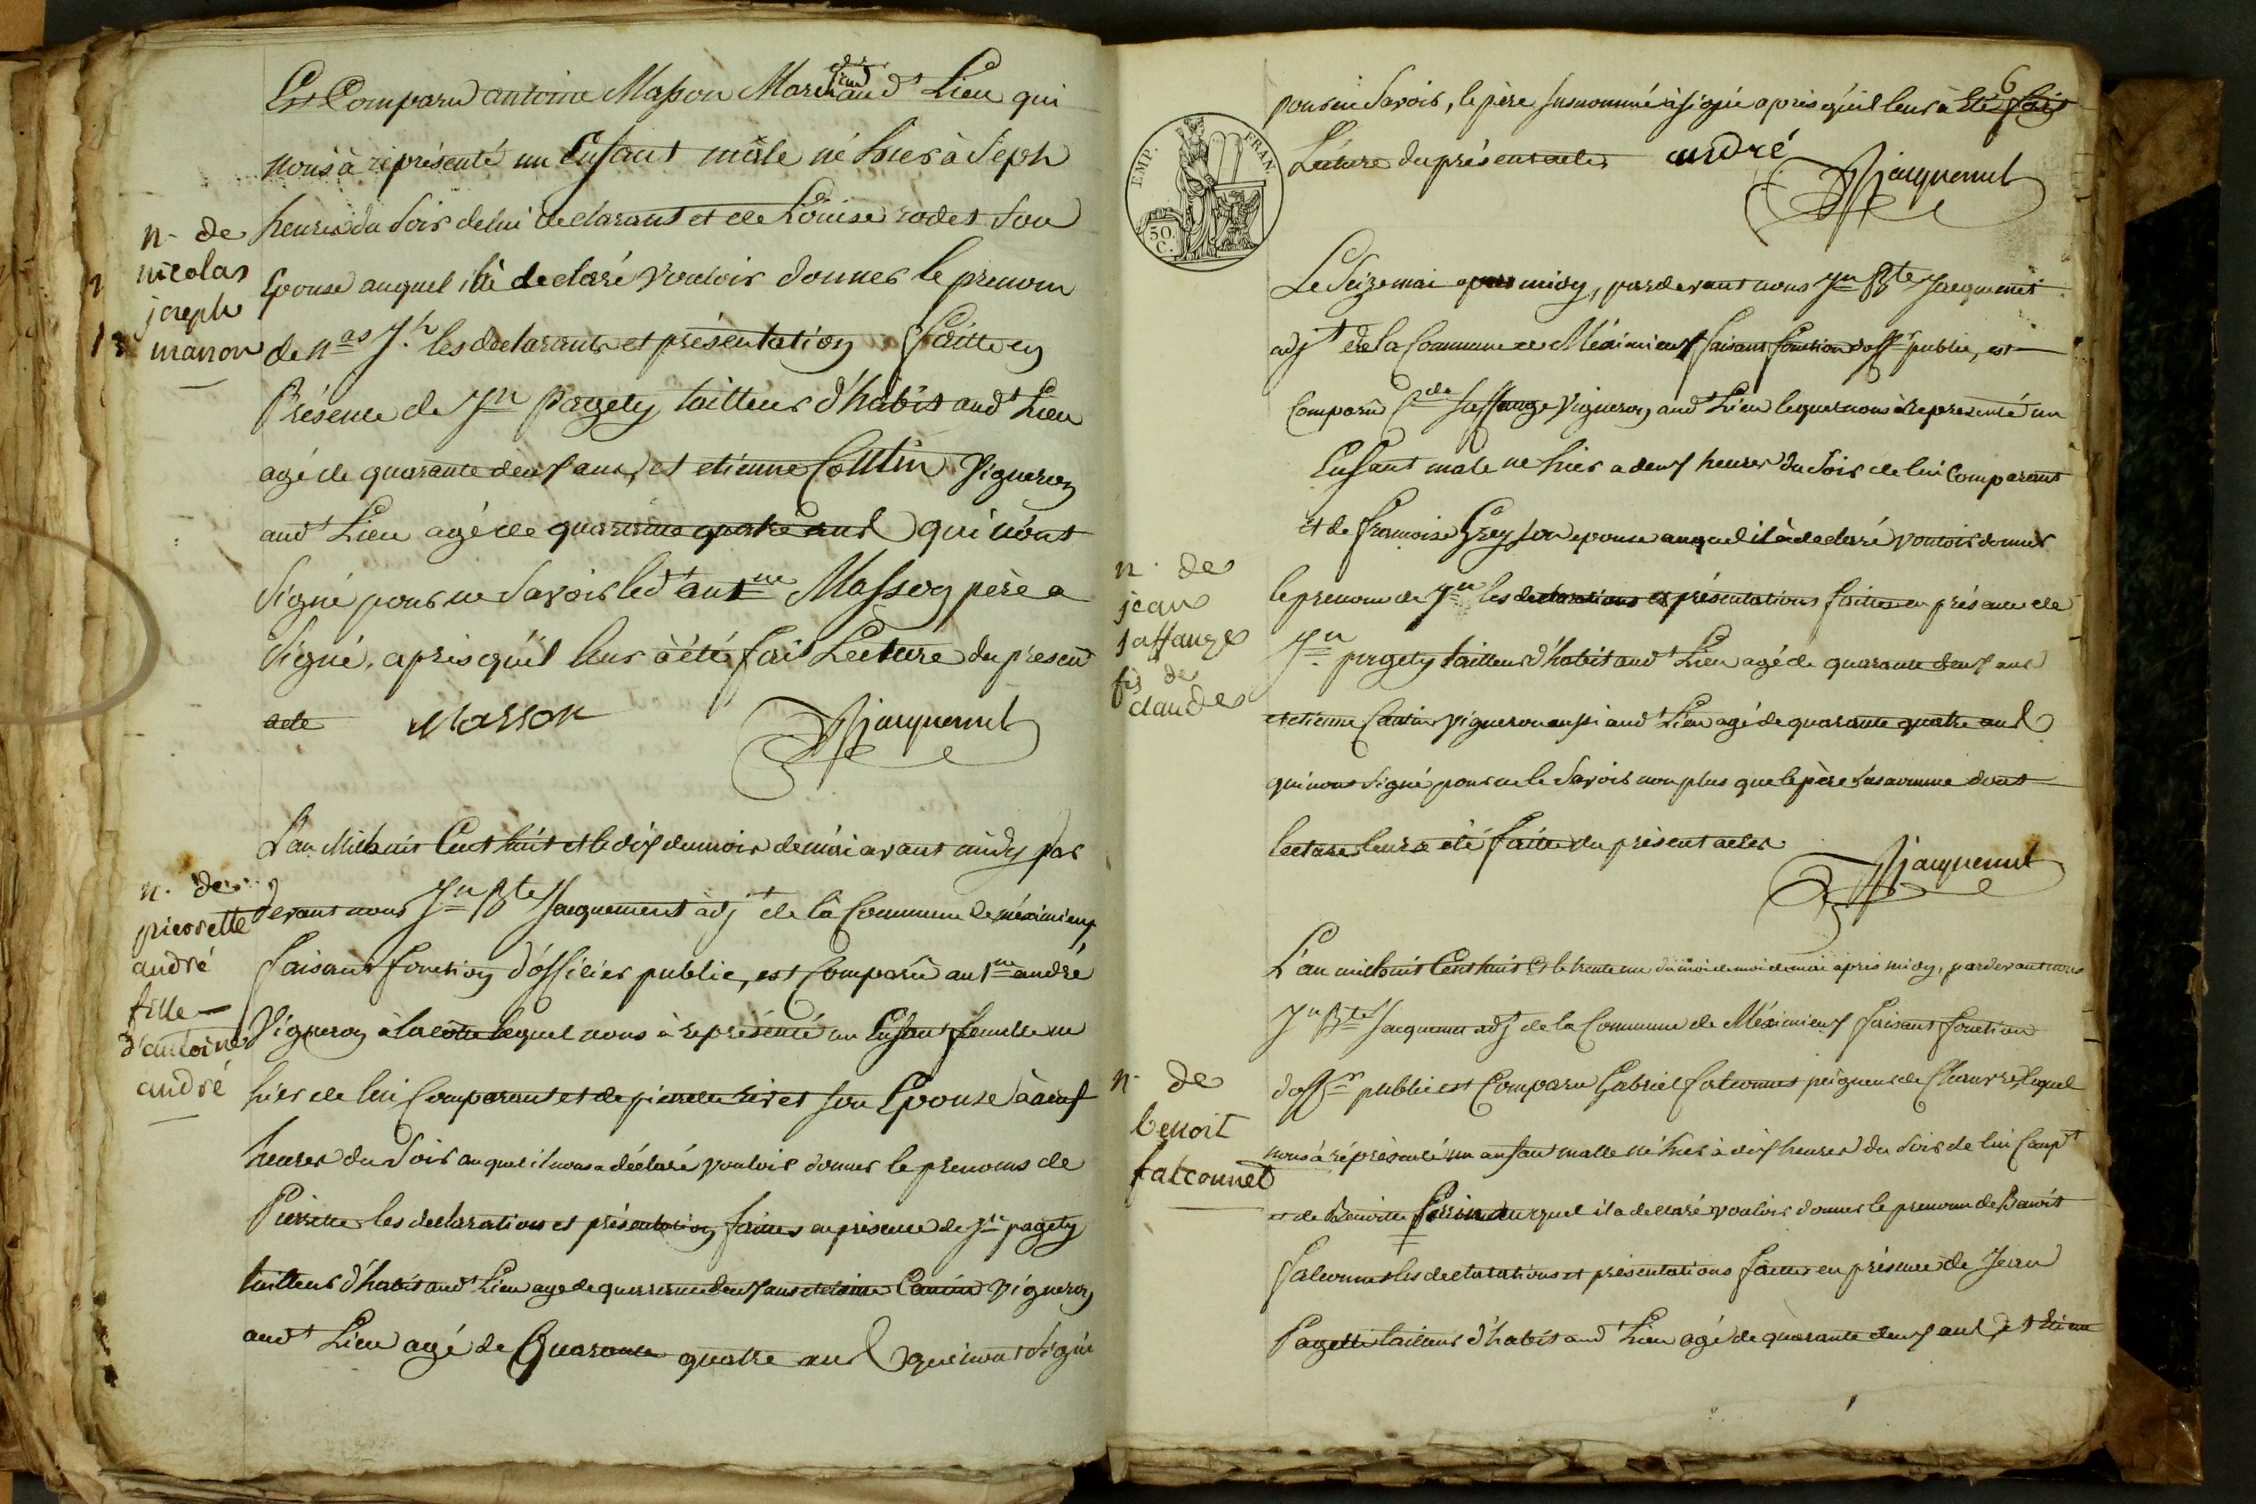 Est Comparu antoine Masson Marchand aud.t Lieu qui
nous à représenté un Enfant mâle né hier à Sept
n. de
nicolas
joseph
masson
heures du Soir de lui declarant et de Louise rodet Son
Epouse auquel il à declaré vouloir donner le prenom
de n.as J.h les declarants et présentation faitte en
Présence de J.n Pagety tailleur d'habit aud.t Lieu
agé de quarante deux ans, et etienne Cottin Vigneron
aud.t Lieu agé de quarante quatre ans qui n'ont
Signé pour ne Savoir led.t ant.ne Masson père a
Signé, après qu'il leur à été fait Lecture du present
acte Masson JBJacquemet
L'an Mil huit Cent huit et le dix du mois de mai avant midy par
n. de
pierrette
andré
fille
d'antoine
andré
devant nous J.n B.te Jacquemet adj.t de la Commune de méximieux
faisant fonction d'officier public, est Comparû ant.ne andré
Vigneron à la côte lequel nous à représenté un Enfant femelle né
hier de lui Comparant et de pierrette rivet son Epouse à neuf
heures du Soir auquel il nous a déclaré vouloir donner le prenoms de
Pierrette les declarations et présentation faittes en présence de J.n pagety
tailleur d'habit aud.t Lieu agé de quarante deux ans et etienne Cottin Vigneron
aud.t Lieu agé de Quarante quatre ans qui n'ont Signé
6
pour ne Savoir, le père susnommé à signé après qu'il leur à été fait
Lecture du présent acte andré JBJacquemet
EMP. FRAN.
50.
C.
Le Seize mai apres midy, pardevant nous J.n B.te Jacquemet
adj.t de la Commune de Méximieux faisant fonction d'off.r public, est
Comparû C.de Jaffange Vigneron aud.t Lieu lequel nous à representé un
Enfant male né hier a deux heures du Soir de lui Comparant
et de francoise Grey son epouse auquel il à declaré vouloir donner
n. de
jean
jaffange
fis de
claude
le prenom de J.n les declarations et présentations faittes en présance de
J.n pagety tailleur d'habit aud.t Lieu agé de quarante deux ans
et etienne Cottin vigneron aussi aud.t Lieu agé de quarante quatre ans
qui n'ont Signé pour ne le Savoir non plus que le père susnommé dont
lecture leur a été faitte du présent acte
JBJacquemet
L'an mil huit Cent huit & le trente un du moi de moi de mai après midy, pardevant nous
J.n B.te Jacquemet adj.t de la Commune de Méximieux faisant fonction
n. de
benoit
falconnet
d'off.er public est Comparu Gabriel falconnet peigneur de Chanvre, lequel
nous à représenté un enfant malle né hier à dix heures du Soir de lui Comp.t
et de Benoitte Perin auquel il a declaré vouloir donner le prenom de Benoit
falconnet les declarations et présentations faittes en présence de Jean
Pagetti tailleur d'habit aud.t Lieu agé de quarante deux ans et Etienne